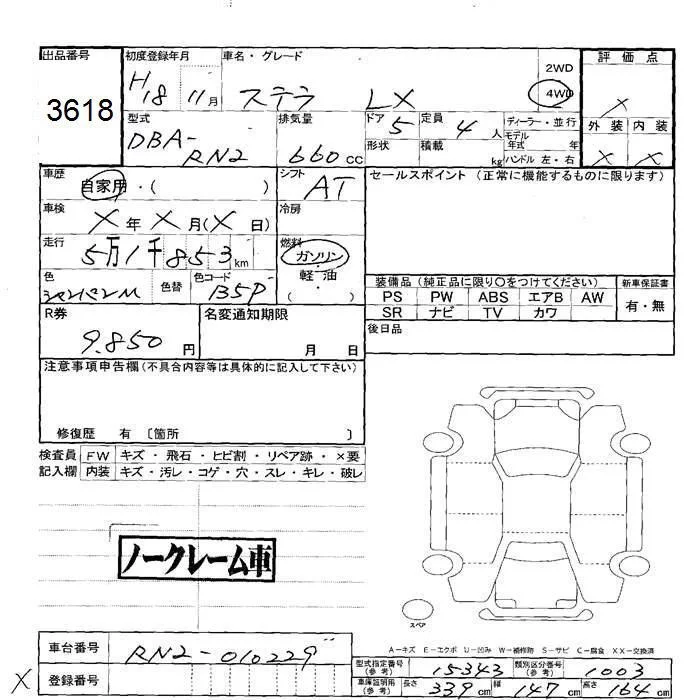 出品番号 初度登録年月 車名・グレード 2WD 評価点
3618 H18 11月 ステラ LX 4WD X
型式 排気量 ドア 定員 ディーラー・並行 外装 内装
DBA-RN2 660cc 5 4人 モデル年式 年 X X
形状 積載 kg ハンドル 左・右
車歴 シフト セールスポイント (正常に機能するものに限ります)
自家用・( ) AT
車検 冷房
X年X月(X日)
走行 燃料
5万1千853km ガソリン・軽油
色 色替 色コード ・( ) 装備品 (純正品に限り〇をつけてください) 新車保証書
シャンパンM B5P PS PW ABS エアB AW 有・無
R券 名変通知期限 SR ナビ TV カワ
9.850円 月 日 後日品
注意事項申告欄(不具合内容等は具体的に記入して下さい)
修復歴 有 〔箇所 〕
検査員 FW キズ・飛石・ヒビ割・リペア跡・×要
記入欄 内装 キズ・汚レ・コゲ・穴・スレ・キレ・破レ
ノークレーム車
スペア
A-キズ E-エクボ U-凹み W-補修跡 S-サビ C-腐食 XX-交換済
車台番号 RN2-010229
型式指定番号(参考) 15343 類別区分番号(参考) 1003
X 登録番号
車庫証明用(参考) 長さ 339cm 幅 147cm 高さ 164cm